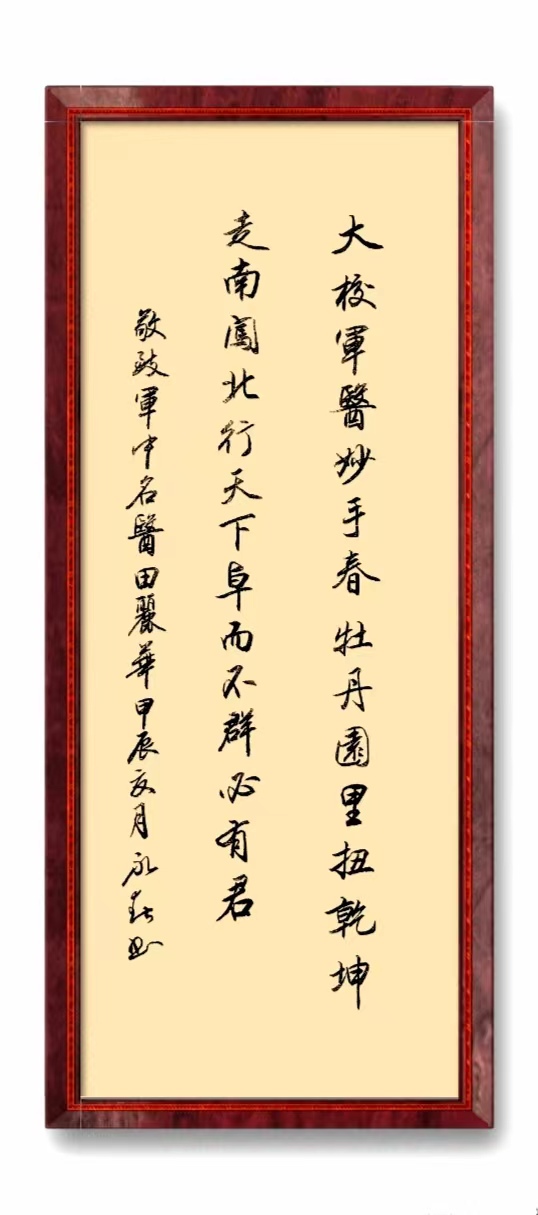 大校軍醫妙手春牡丹園里扭乾坤
走南闖北行天下阜而不群必有君
敬致軍中名醫田麗華甲辰亥月永春书